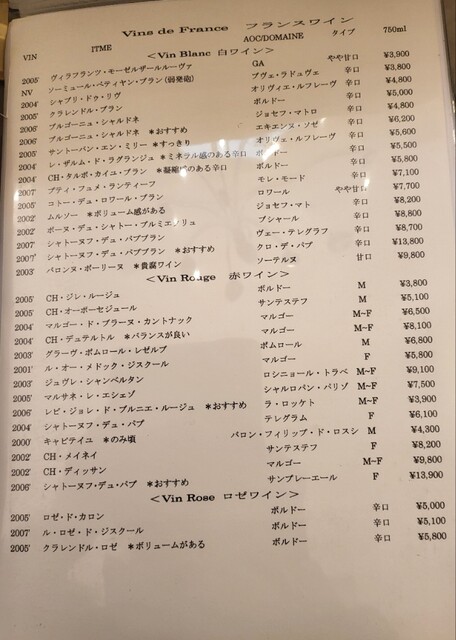 Vins de France フランスワイン
VIN ITME AOC/DOMAINE タイプ 750ml
＜Vin Blanc 白ワイン＞
2005' ヴィラフランツ・モーゼルザールルーヴァ GA やや甘口 ¥3,900
NV ソーミュール・ペティヤン・ブラン (弱発砲) ブヴェ・ラドュヴェ 辛口 ¥3,800
2004' シャブリ・ドゥ・リヴ オリヴィエ・ルフレーヴ 辛口 ¥4,800
2005' クラレンドル・ブラン ボルドー 辛口 ¥5,000
2006' ブルゴーニュ・シャルドネ ジョセフ・マトロ 辛口 ¥4,800
2006' ブルゴーニュ・シャルドネ ＊おすすめ エキエンヌ・ソゼ 辛口 ¥6,200
2005' サントーバン・エン・ミリー ＊すっきり オリヴィエ・ルフレーヴ 辛口 ¥5,600
2004' レ・ザルム・ド・ラグランジュ ＊ミネラル感のある辛口 ボルドー 辛口 ¥5,500
2004' CH・タルボ・カイユ・ブラン ＊凝縮感のある辛口 ボルドー 辛口 ¥5,800
2007' プティ・フュメ・ランティーフ モレ・モード 辛口 ¥7,100
2005' コトー・デュ・ロワール・ブラン ロワール やや甘口 ¥7,700
2002' ムルソー ＊ボリューム感がある ジョセフ・マト 辛口 ¥8,200
2002' ボーヌ・デュ・シャトー・プルミエクリュ ブシャール 辛口 ¥8,800
2007' シャトーヌフ・デュ・パプブラン ヴュー・テレグラフ 辛口 ¥8,700
2007' シャトーヌフ・デュ・パプブラン ＊おすすめ クロ・デ・パプ 辛口 ¥13,800
2003' バロンヌ・ポーリーヌ ＊貴腐ワイン ソーテルヌ 甘口 ¥9,800
＜Vin Rouge 赤ワイン＞
2005' CH・ジレ・ルージュ ボルドー M ¥3,800
2005' CH・オーボーセジュール サンテステフ M ¥5,100
2004' マルゴー・ド・ブラーヌ・カントナック マルゴー M~F ¥6,500
2004' CH・デュテルトル ＊バランスが良い マルゴー M~F ¥8,100
2003' グラーヴ・ポムロール・レゼルブ ポムロール M ¥6,800
2001' ル・オー・メドック・ジスクール マルゴー F ¥5,800
2003' ジュヴレ・シャンベルタン ロシニョール・トラペ M~F ¥9,100
2005' マルサネ・レ・エシェゾ シャルロパン・パリゾ M~F ¥7,500
2006' レピ・ジョレ・ド・プルニエ・ルージュ ＊おすすめ ラ・ロッケト M~F ¥3,900
2004' シャトーヌフ・デュ・パプ テレグラム F ¥6,100
2000' キャピテイユ ＊のみ頃 バロン・フィリップ・ド・ロスシ M ¥4,300
2002' CH・メイネイ サンテステフ F ¥8,200
2002' CH・ディッサン マルゴー M~F ¥9,800
2006' シャトーヌフ・デュ・パプ ＊おすすめ サンプレーエール F ¥13,900
＜Vin Rose ロゼワイン＞
2005' ロゼ・ド・カロン ボルドー 辛口 ¥5,000
2007' ル・ロゼ・ド・ジスクール ボルドー 辛口 ¥5,100
2005' クラレンドル・ロゼ ＊ボリュームがある ボルドー 辛口 ¥5,800